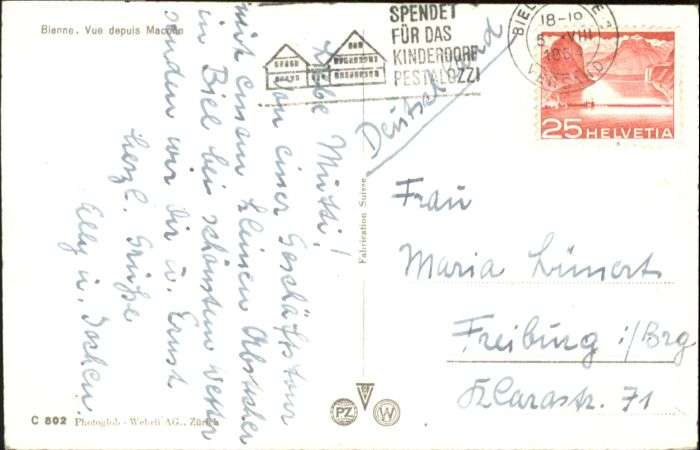 Bienne. Vue depuis Macolin
SPENDET
FÜR DAS
KINDERDORF
PESTALOZZI
BIEL
18-19
VIII
VERSAND
25 HELVETIA
Deutschland
Liebe Mutti!
Von einer Geschäftstour
mit einem kleinen Abstecher
in Biel bei schönstem Wetter
senden wir Dir u. Ernst
herzl. Grüße
Elly u. Jochen.
Fabrication Suisse
Frau
Maria Lünert
Freiburg i/Brg
Klarastr. 71
PZ
W
C 802 Photoglob-Wehrli AG., Zürich